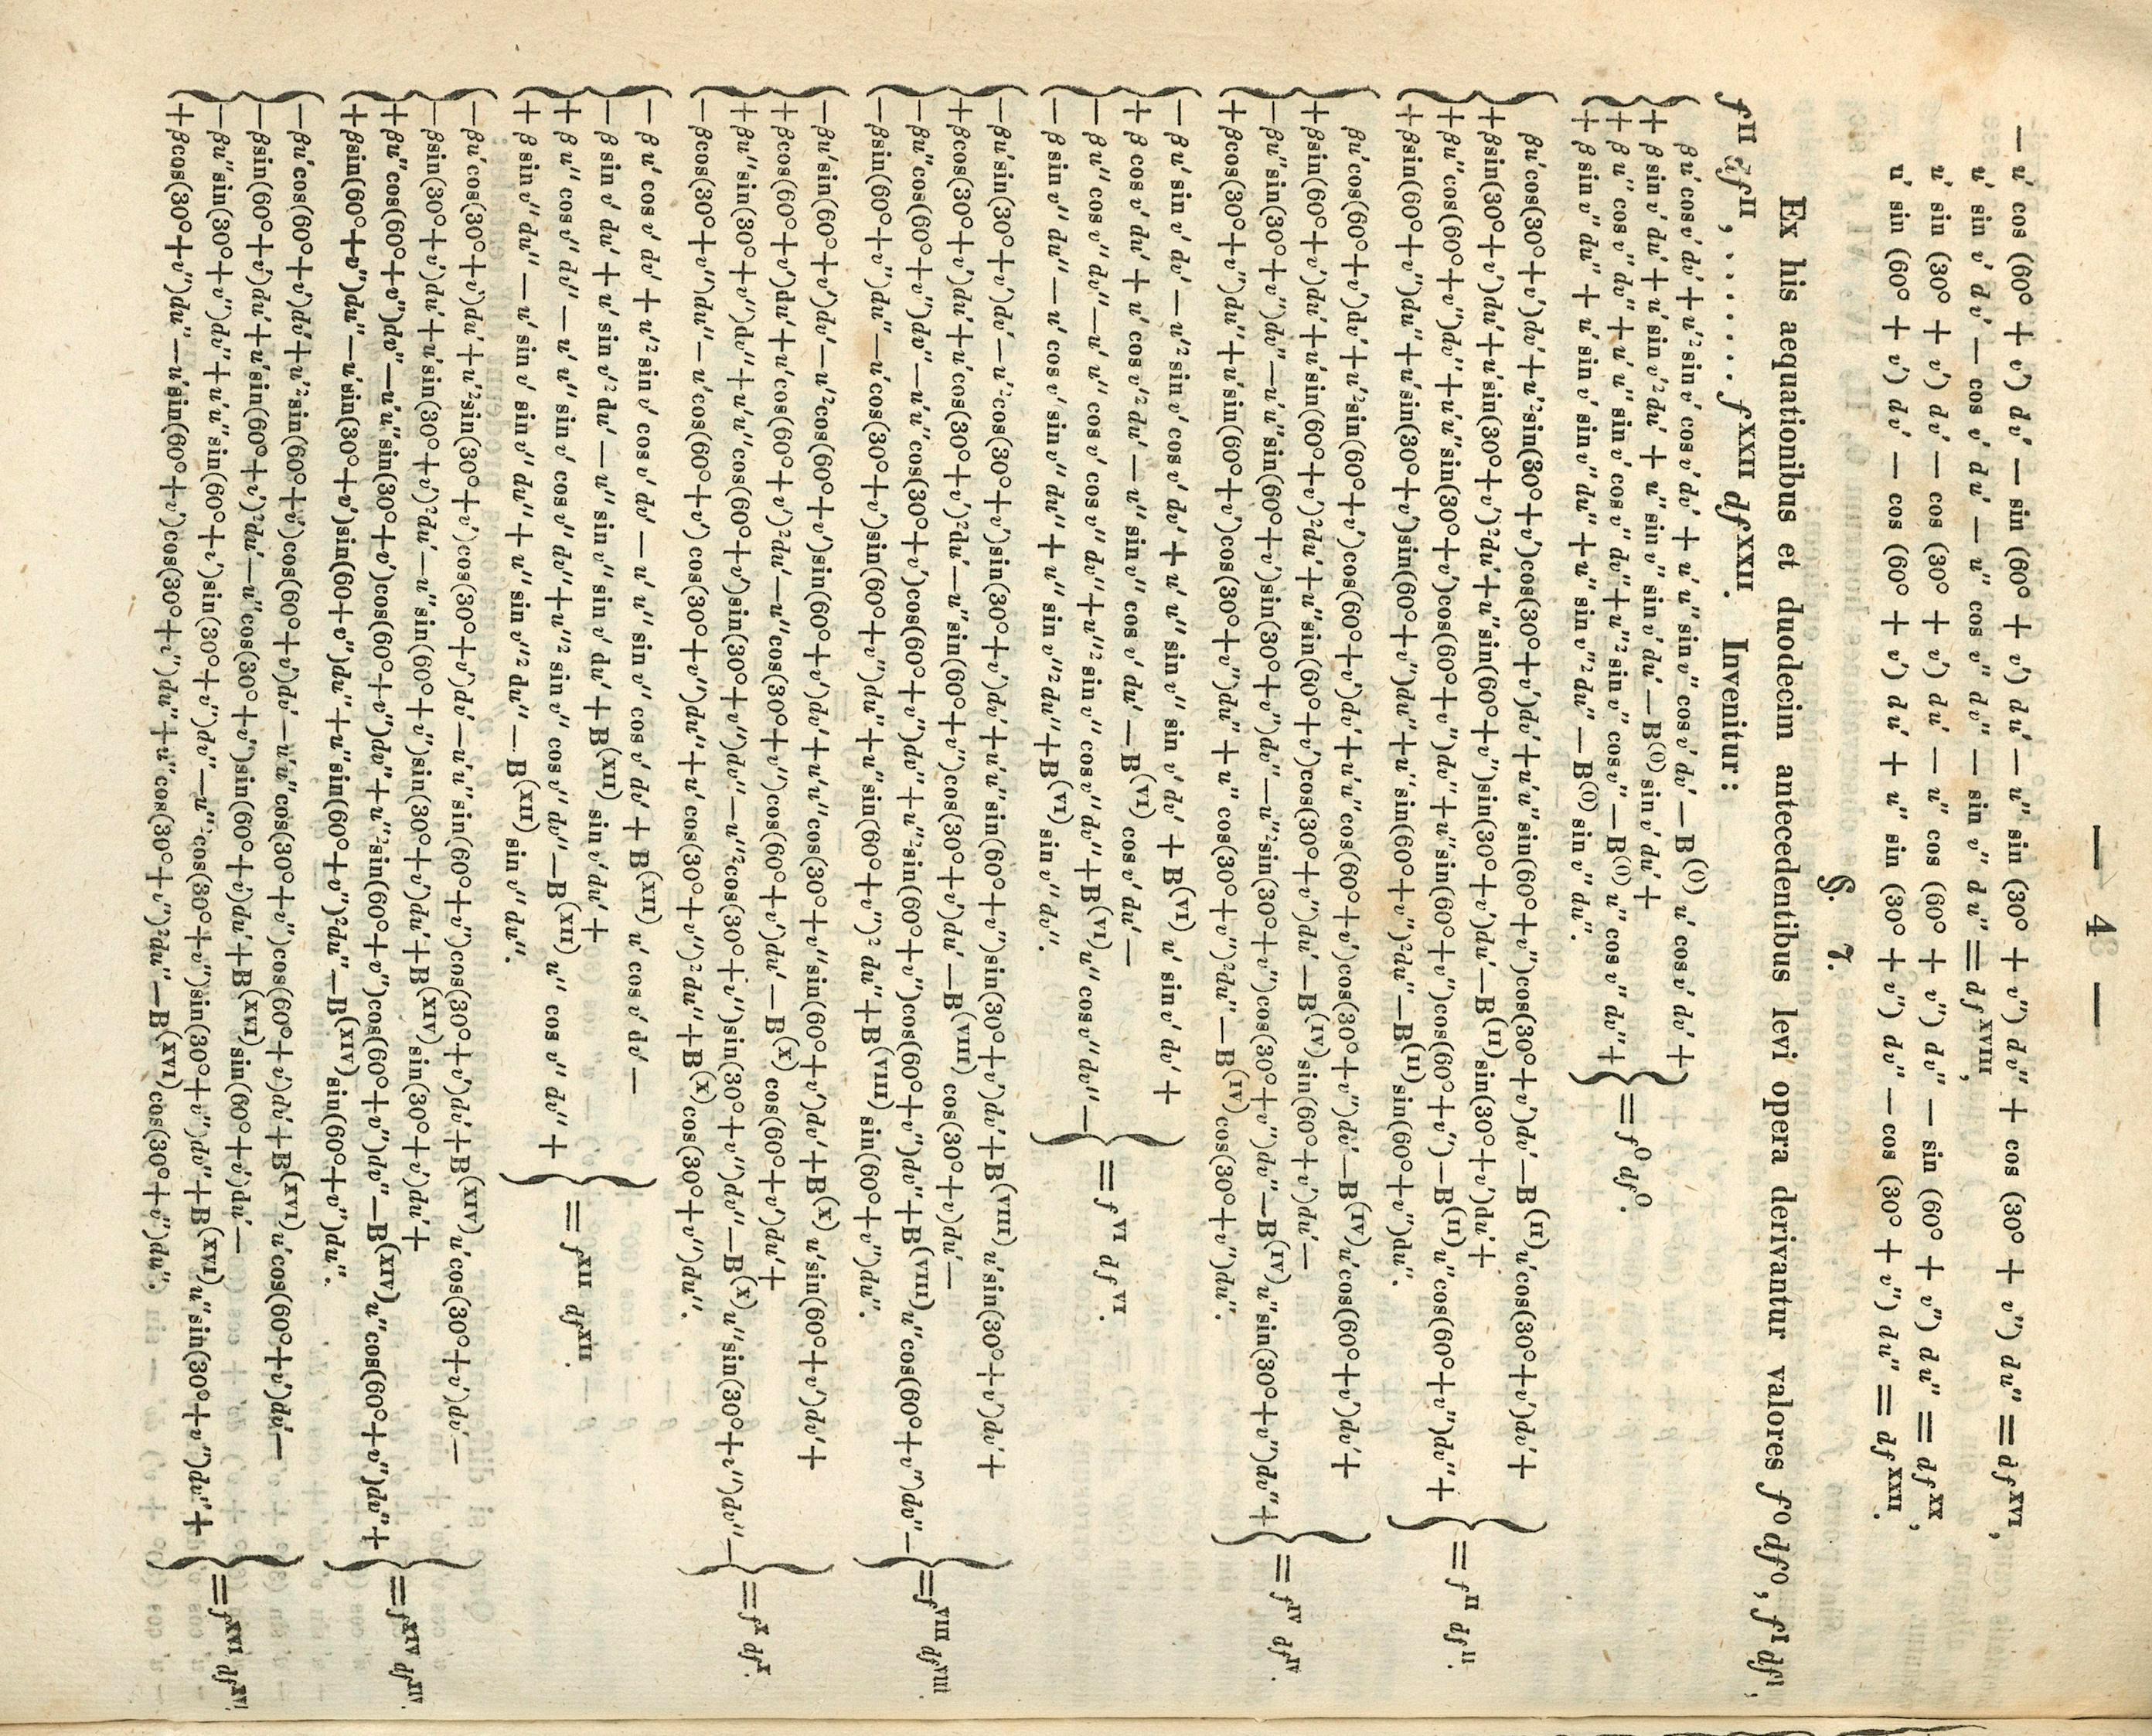 — 4 —
— u' cos (60° + v') dv' — sin (60° + v') du' — u'' sin (30° + v'') dv'' + cos (30° + v'') du'' = df^XVI,
u' sin v' dv' — cos v' du' — u'' cos v'' dv'' — sin v'' du'' = df^XVIII,
u' sin (30° + v') dv' — cos (30° + v') du' — u'' cos (60° + v'') dv'' — sin (60° + v'') du'' = df^XX,
u' sin (60° + v') dv' — cos (60° + v') du' + u'' sin (30° + v'') dv'' — cos (30° + v'') du'' = df^XXII.
§. 7.
Ex his aequationibus et duodecim antecedentibus levi opera derivantur valores f^0 df^0, f^I df^I,
f^II df^II, . . . . . . f^XXII df^XXII. Invenitur:
βu' cos v' dv' + u'² sin v' cos v' dv' + u' u'' sin v'' cos v' dv' — B^(0) u' cos v' dv' +
+ β sin v' du' + u' sin v'² du' + u'' sin v'' sin v' du' — B^(0) sin v' du' +
+ β u'' cos v'' dv'' + u' u'' sin v' cos v'' dv'' + u''² sin v'' cos v'' — B^(0) u'' cos v'' dv'' +
+ β sin v'' du'' + u' sin v' sin v'' du'' + u'' sin v''² du'' — B^(0) sin v'' du''.
= f^0 df^0.
βu' cos(30°+v')dv' + u'² sin(30°+v')cos(30°+v')dv' + u'u'' sin(60°+v'')cos(30°+v')dv' — B^(II) u' cos(30°+v')dv' +
+ β sin(30°+v')du' + u' sin(30°+v')² du' + u'' sin(60°+v'')sin(30°+v')du' — B^(II) sin(30°+v')du' +
+ βu'' cos(60°+v'')dv'' + u'u'' sin(30°+v')cos(60°+v'')dv'' + u'' sin(60°+v'')cos(60°+v'') — B^(II) u'' cos(60°+v'')dv'' +
+ β sin(60°+v'')du'' + u' sin(30°+v')sin(60°+v'')du'' + u'' sin(60°+v'')² du'' — B^(II) sin(60°+v'')du''.
= f^II df^II.
βu' cos(60°+v')dv' + u'² sin(60°+v')cos(60°+v')dv' + u'u'' cos(60°+v')cos(30°+v'')dv' — B^(IV) u' cos(60°+v')dv' +
+ β sin(60°+v')du' + u' sin(60°+v')² du' + u'' sin(60°+v')cos(30°+v'')du' — B^(IV) sin(60°+v')du' —
— βu'' sin(30°+v'')dv'' — u'u'' sin(60°+v')sin(30°+v'')dv'' — u''² sin(30°+v'')cos(30°+v'')dv'' — B^(IV) u'' sin(30°+v'')dv'' +
+ β cos(30°+v'')du'' + u' sin(60°+v')cos(30°+v'')du'' + u'' cos(30°+v'')² du'' — B^(IV) cos(30°+v'')du''.
= f^IV df^IV.
— β u' sin v' dv' — u'² sin v' cos v' dv' + u' u'' sin v'' sin v' dv' + B^(VI) u' sin v' dv' +
+ β cos v' du' + u' cos v'² du' — u'' sin v'' cos v' du' — B^(VI) cos v' du' —
— β u'' cos v'' dv'' — u' u'' cos v' cos v'' dv'' + u''² sin v'' cos v'' dv'' + B^(VI) u'' cos v'' dv'' —
— β sin v'' du'' — u' cos v' sin v'' du'' + u'' sin v''² du'' + B^(VI) sin v'' dv''.
= f^VI df^VI.
— βu' sin(30°+v')dv' — u'² cos(30°+v')sin(30°+v')dv' + u'u'' sin(60°+v'')sin(30°+v')dv' + B^(VIII) u' sin(30°+v')dv' +
+ β cos(30°+v')du' + u' cos(30°+v')² du' — u'' sin(60°+v'')cos(30°+v')du' — B^(VIII) cos(30°+v')du' —
— βu'' cos(60°+v'')dv'' — u'u'' cos(30°+v')cos(60°+v'')dv'' + u''² sin(60°+v'')cos(60°+v'')dv'' + B^(VIII) u'' cos(60°+v'')dv'' —
— β sin(60°+v'')du'' — u' cos(30°+v')sin(60°+v'')du'' + u'' sin(60°+v'')² du'' + B^(VIII) sin(60°+v'')du''.
= f^VIII df^VIII.
— βu' sin(60°+v')dv' — u'² cos(60°+v')sin(60°+v')dv' + u'u'' cos(30°+v'')sin(60°+v')dv' + B^(X) u' sin(60°+v')dv' +
+ β cos(60°+v')du' + u' cos(60°+v')² du' — u'' cos(30°+v'')cos(60°+v')du' — B^(X) cos(60°+v')du' +
+ βu'' sin(30°+v'')dv'' + u'u'' cos(60°+v')sin(30°+v'')dv'' — u''² cos(30°+v'')sin(30°+v'')dv'' — B^(X) u'' sin(30°+v'')dv'' —
— β cos(30°+v'')du'' — u' cos(60°+v') cos(30°+v'')du'' + u' cos(30°+v'')² du'' + B^(X) cos(30°+v'')du''.
= f^X df^X.
— β u' cos v' dv' + u'² sin v' cos v' dv' — u' u'' sin v'' cos v' dv' + B^(XII) u' cos v' dv' —
— β sin v' du' + u' sin v'² du' — u'' sin v'' sin v' du' + B^(XII) sin v' du' +
+ β u'' cos v'' dv'' — u' u'' sin v' cos v'' dv'' + u''² sin v'' cos v'' dv'' — B^(XII) u'' cos v'' dv'' +
+ β sin v'' du'' — u' sin v' sin v'' du'' + u'' sin v''² du'' — B^(XII) sin v'' du''.
= f^XII df^XII.
— βu' cos(30°+v')dv' + u'² sin(30°+v')cos(30°+v')dv' — u'u'' sin(60°+v'')cos(30°+v')dv' + B^(XIV) u' cos(30°+v')dv' —
— β sin(30°+v')du' + u' sin(30°+v')² du' — u'' sin(60°+v'')sin(30°+v')du' + B^(XIV) sin(30°+v')du' +
+ βu'' cos(60°+v'')dv'' — u'u'' sin(30°+v')cos(60°+v'')dv'' + u''² sin(60°+v'')cos(60°+v'')dv'' — B^(XIV) u'' cos(60°+v'')dv'' +
+ β sin(60°+v'')du'' — u' sin(30°+v')sin(60+v'')du'' + u'' sin(60°+v'')² du'' — B^(XIV) sin(60°+v'')du''.
= f^XIV df^XIV.
— βu' cos(60°+v')dv' + u'² sin(60°+v')cos(60°+v')dv' — u'u'' cos(30°+v'')cos(60°+v')dv' + B^(XVI) u' cos(60°+v')dv' —
— β sin(60°+v')du' + u' sin(60°+v')² du' — u'' cos(30°+v'')sin(60°+v')du' + B^(XVI) sin(60°+v')du' —
— βu'' sin(30°+v'')dv'' + u'u'' sin(60°+v')sin(30°+v'')dv'' — u''² cos(30°+v'')sin(30°+v'')dv'' + B^(XVI) u'' sin(30°+v'')dv'' +
+ β cos(30°+v'')du'' — u' sin(60°+v')cos(30°+v'')du'' + u'' cos(30°+v'')² du'' — B^(XVI) cos(30°+v'')du''.
= f^XVI df^XVI.